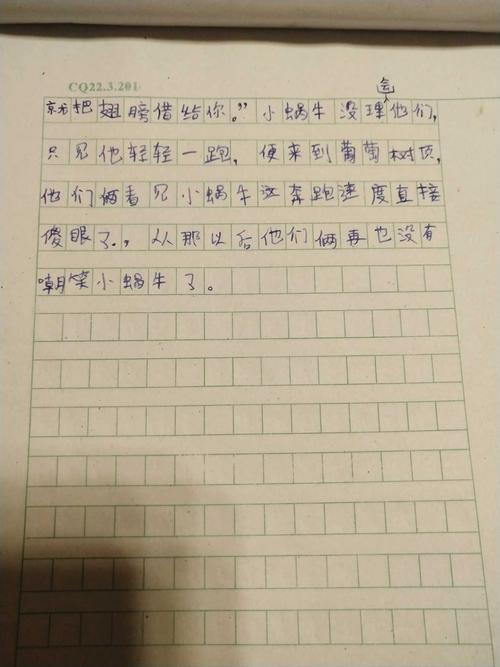 CQ22.3.201
会
就把翅膀借给你。”小蜗牛没理他们,
只见他轻轻一跑,便来到葡萄树顶,
他们俩看见小蜗牛这奔跑速度直接
傻眼了.,从那以后他们俩再也没有
嘲笑小蜗牛了。